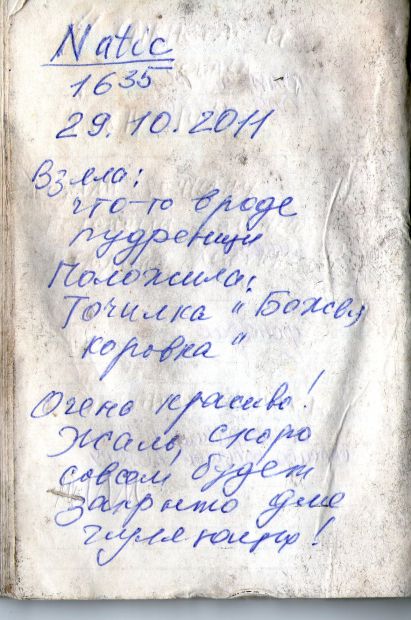 Natic
1635
29.10.2011
Взяла:
что-то вроде
пудреницы
Положила:
Точилка "Божья
коровка"
Очень красиво!
Жаль, скоро
совсем будет
закрыто для
гуляющих!